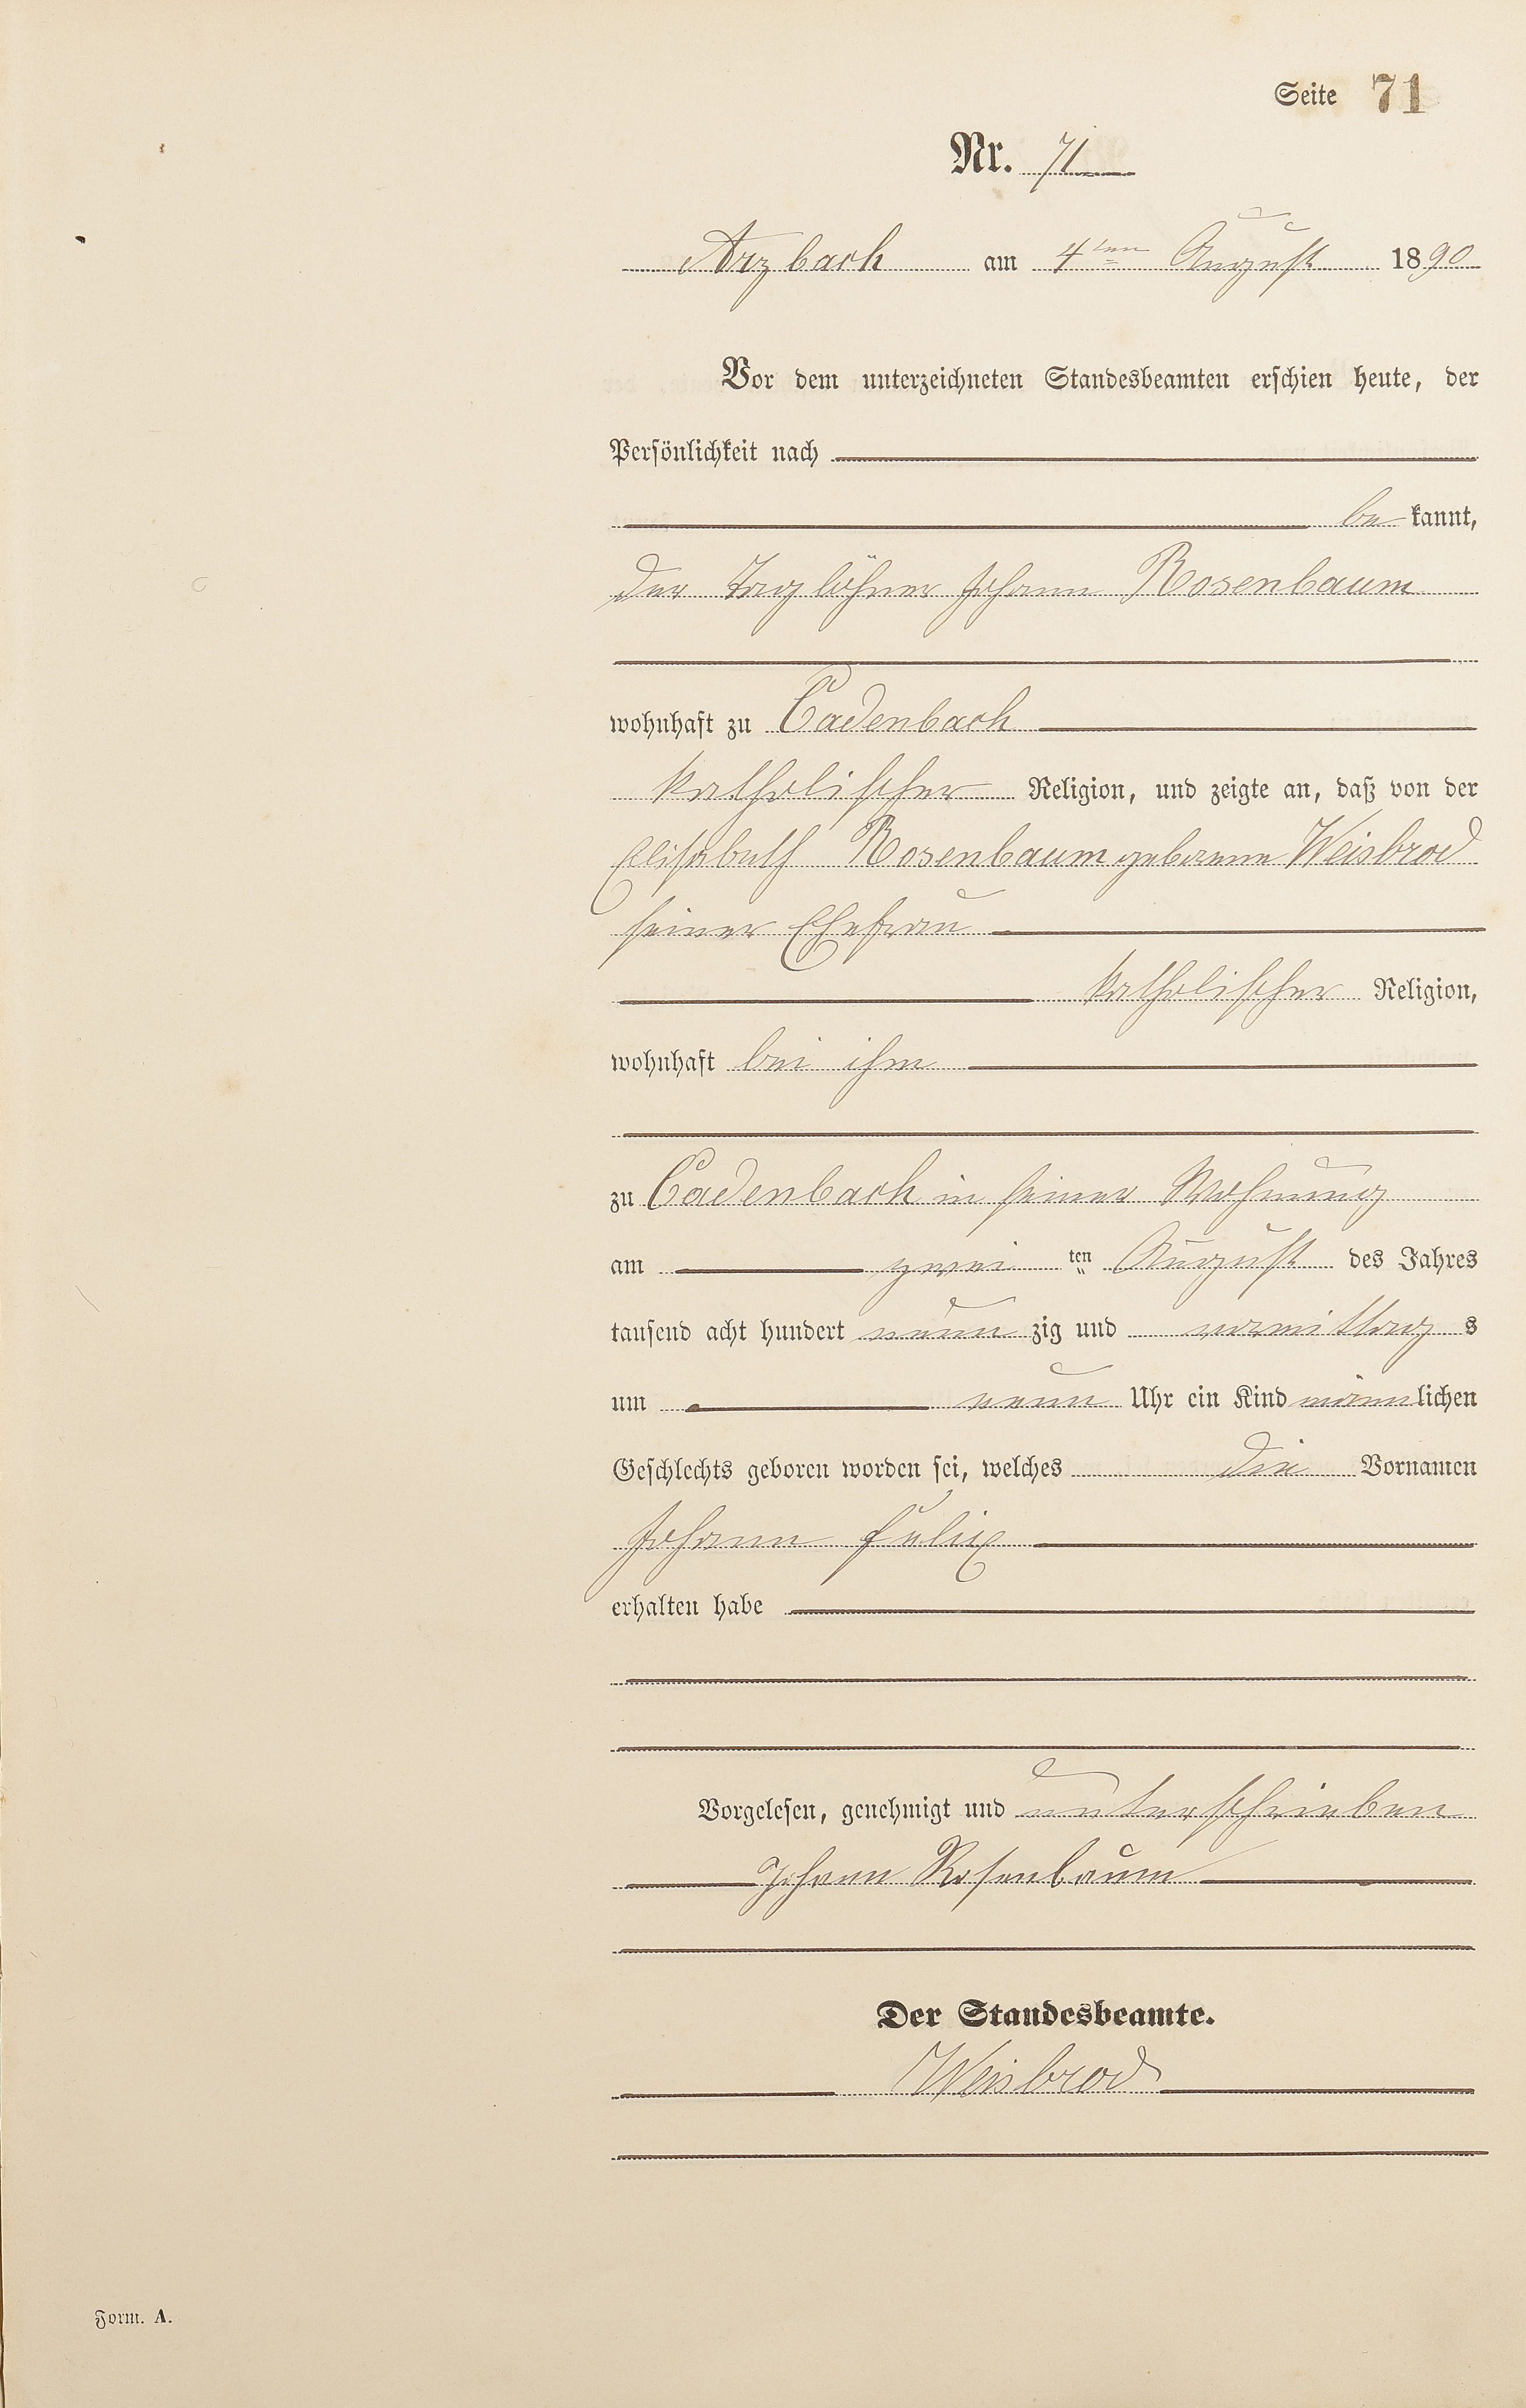 Seite 71
Nr. 71
Arzbach am 4ten August 1890
Vor dem unterzeichneten Standesbeamten erschien heute, der
Persönlichkeit nach
be kannt,
der Taglöhner Johann Rosenbaum
wohnhaft zu Cadenbach
katholischer Religion, und zeigte an, daß von der
Elisabeth Rosenbaum geborene Weisbrod
seiner Ehefrau
katholischer Religion,
wohnhaft bei ihm
zu Cadenbach in seiner Wohnung
am zwei ten August des Jahres
tausend acht hundert neun zig und vormittag s
um neun Uhr ein Kind männlichen
Geschlechts geboren worden sei, welches die Vornamen
Johann Felix
erhalten habe
Vorgelesen, genehmigt und unterschrieben
Johann Rosenbaum
Der Standesbeamte.
Weisbrod
Form. A.